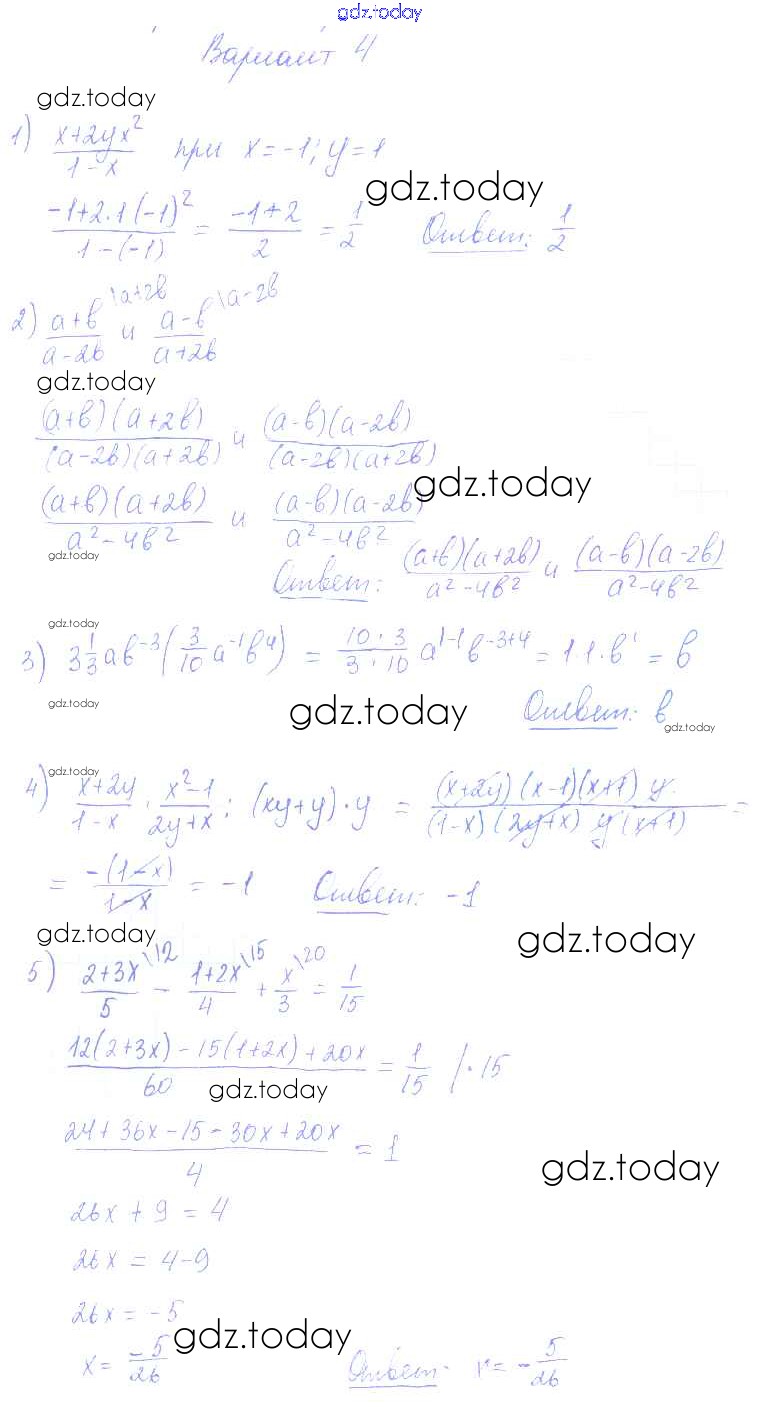 gdz.today
Вариант 4
gdz.today
1) (x+2yx²)/(1-x) при x=-1; y=1
gdz.today
(-1+2·1(-1)²)/(1-(-1)) = (-1+2)/2 = 1/2 Ответ: 1/2
2) (a+b)/(a-2b) \a+2b и (a-b)/(a+2b) \a-2b
gdz.today
((a+b)(a+2b))/((a-2b)(a+2b)) и ((a-b)(a-2b))/((a-2b)(a+2b))
gdz.today
((a+b)(a+2b))/(a²-4b²) и ((a-b)(a-2b))/(a²-4b²)
gdz.today
Ответ: ((a+b)(a+2b))/(a²-4b²) и ((a-b)(a-2b))/(a²-4b²)
gdz.today
3) 3 1/3 ab⁻³(3/10 a⁻¹b⁴) = (10·3)/(3·10) a¹⁻¹b⁻³⁺⁴ = 1·1·b¹ = b
gdz.today
gdz.today
Ответ: b
gdz.today
gdz.today
4) (x+2y)/(1-x) · (x²-1)/(2y+x) : (xy+y)·y = ((x+2y)(x-1)(x+1)y)/((1-x)(2y+x)y(x+1)) =
= (-(1-x))/(1-x) = -1 Ответ: -1
gdz.today
gdz.today
5) (2+3x)/5 \12 - (1+2x)/4 \15 + x/3 \20 = 1/15
(12(2+3x)-15(1+2x)+20x)/60 = 1/15 /·15
gdz.today
(24+36x-15-30x+20x)/4 = 1
gdz.today
26x+9=4
26x=4-9
26x=-5
gdz.today
x=-5/26 Ответ: x=-5/26